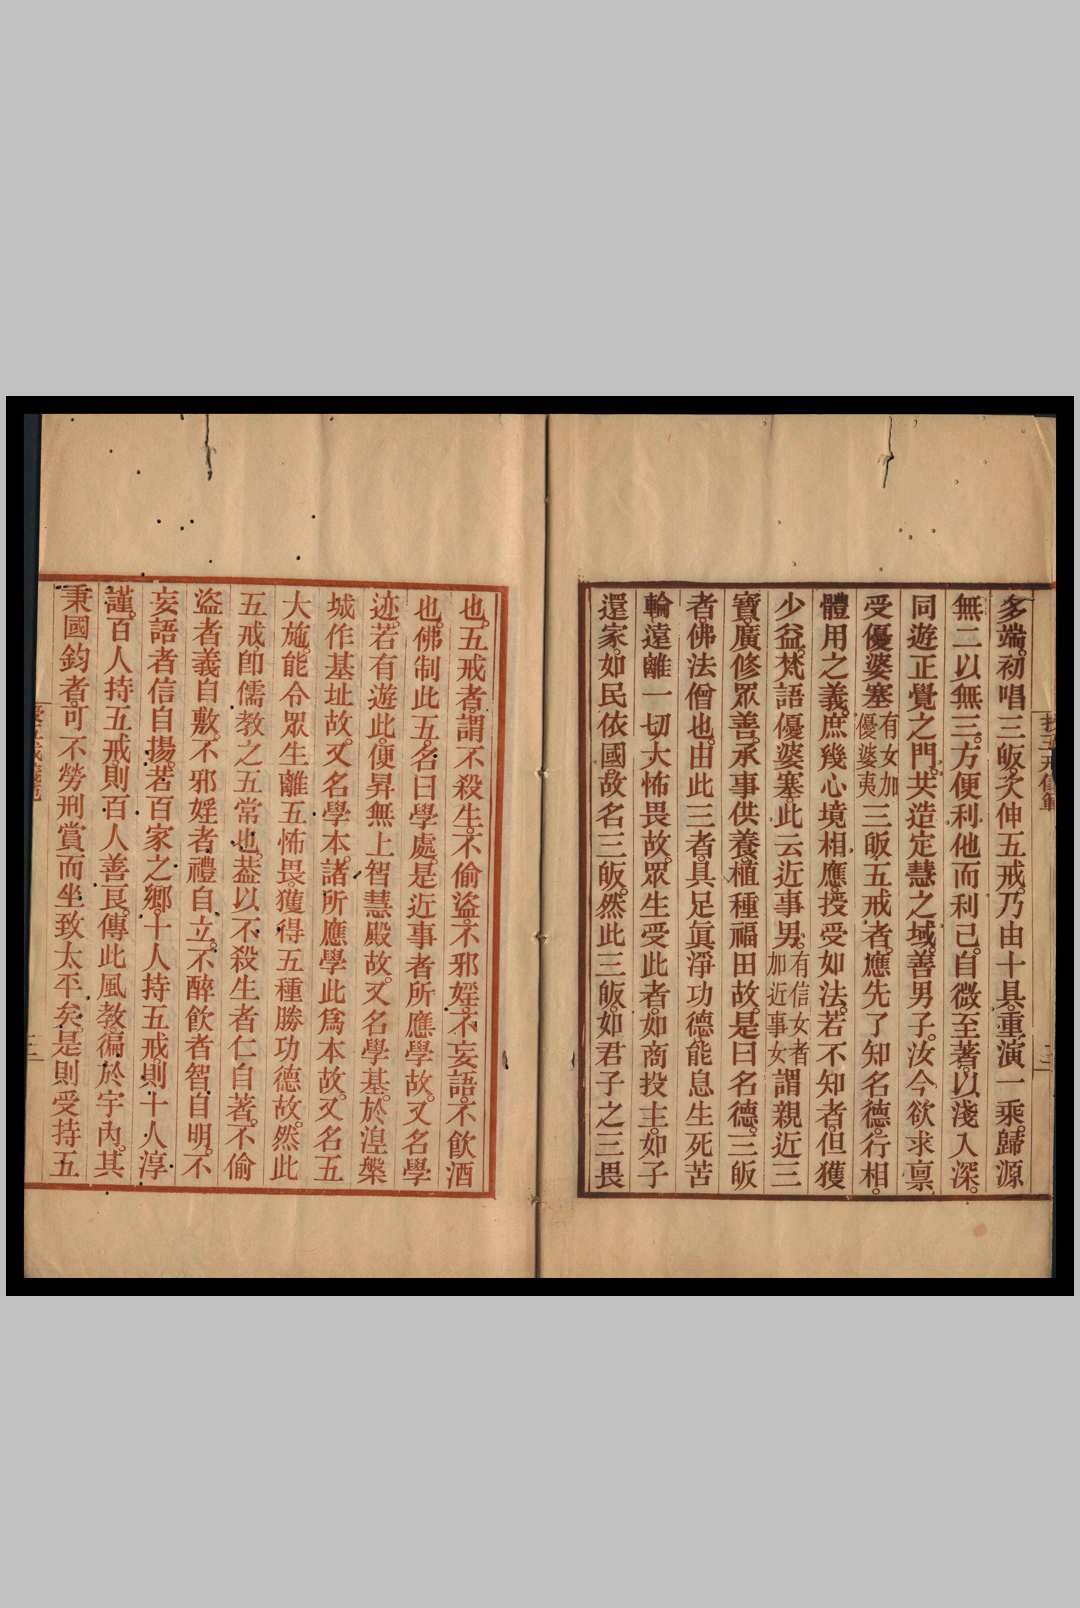 多端。初唱三皈。次伸五戒。乃由十具。重演一乘。歸源
無二以無三。方便利他而利己。自微至著。以淺入深。
同遊正覺之門。共造定慧之域。善男子。汝今欲求稟
受優婆塞有女加優婆夷三皈五戒者。應先了知名德。行相。
體用之義。庶幾心境相應。授受如法。若不知者。但獲
少益。梵語優婆塞。此云近事男。有信女者加近事女謂親近三
寶。廣修眾善。承事供養。植種福田故。是曰名德。三皈
者。佛法僧也。由此三者。具足眞淨功德。能息生死苦
輪。遠離一切大怖畏故。眾生受此者。如商投主。如子
還家。如民依國。故名三皈。然此三皈。如君子之三畏
也。五戒者。謂不殺生。不偷盜。不邪婬。不妄語。不飲酒
也。佛制此五。名曰學處。是近事者所應學故。又名學
迹。若有遊此。便昇無上智慧殿故。又名學基。於涅槃
城作基址故。又名學本。諸所應學此爲本故。又名五
大施。能令眾生離五怖畏。獲得五種勝功德故。然此
五戒。卽儒教之五常也。葢以不殺生者仁自著。不偷
盜者義自敷。不邪婬者禮自立。不醉飲者智自明。不
妄語者信自揚。若百家之鄉。十人持五戒。則十人淳
謹。百人持五戒。則百人善良。傳此風教。徧於宇內。其
秉國鈞者。可不勞刑賞而坐致太平矣。是則受持五